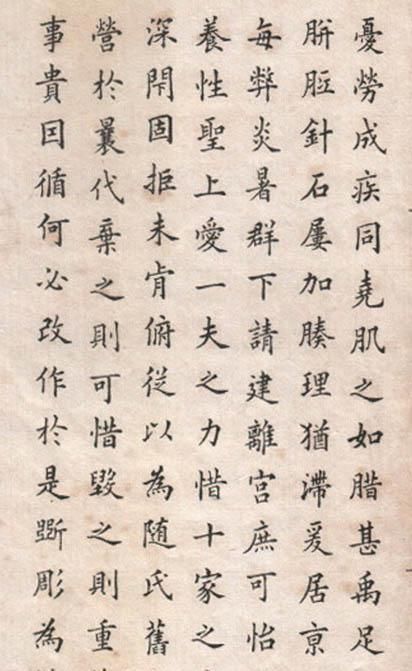 憂勞成疾同堯肌之如腊甚禹足
胼胝針石屢加腠理猶滯爰居亰
每弊炎暑群下請建離宮庶可怡
養性聖上愛一夫之力惜十家之
深閇固拒未肯俯從以為随氏舊
營於曩代棄之則可惜毀之則重
事貴囙循何必改作於是斵彫為